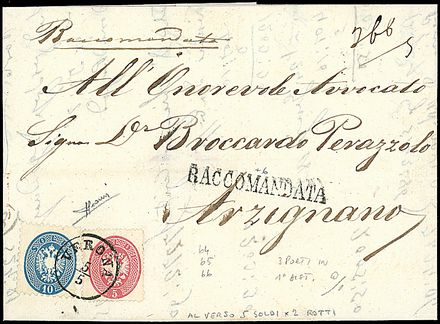 Raccomandata
366
All'Onorevole Avvocato
Signor Dr Broccardo Perazzolo
RACCOMANDATA
Arzignano
VERONA
10
5
64
65
66
3 PORTI IN
1a DIST.
AL VERSO 5 SOLDI x 2 ROTTI